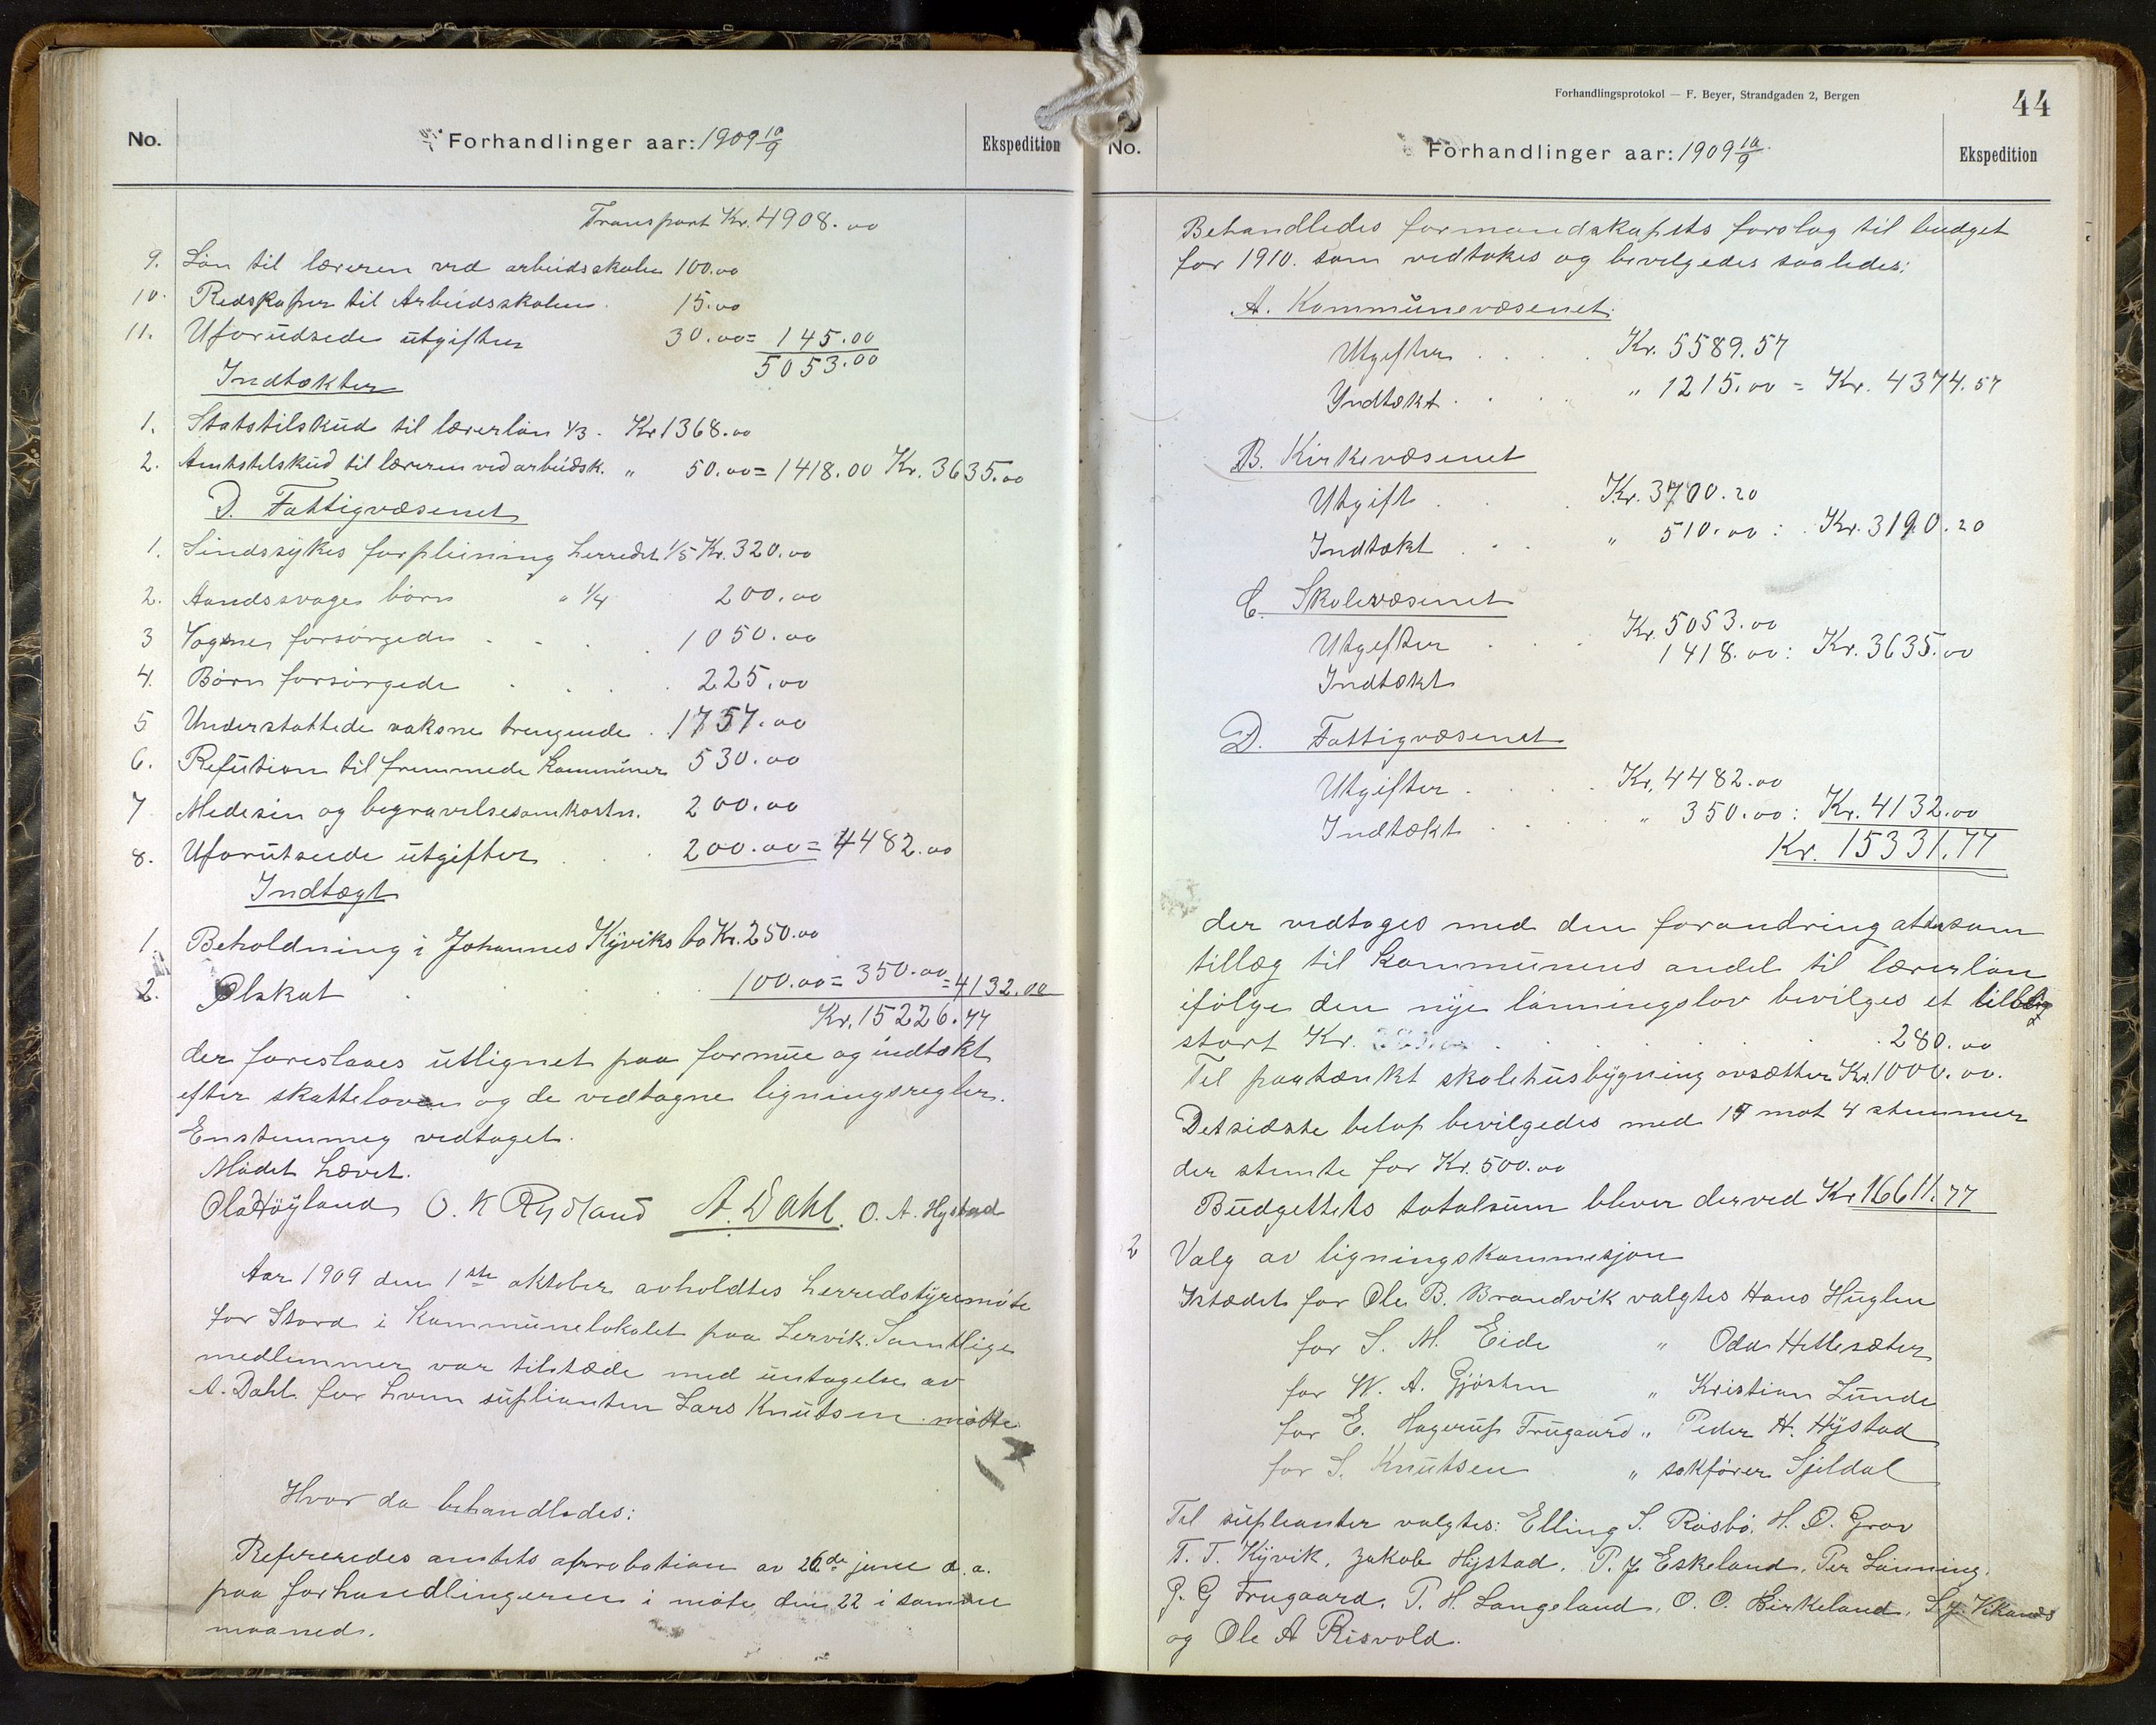 No. Forhandlinger aar: 1909 10/9 Ekspedition
Transport Kr. 4908.00
9. Løn til læreren ved arbeidsskolen 100.00
10. Redskaper til Arbeidsskolen. 15.00
11. Uforudsede utgifter 30.00 = 145.00
5053.00
Indtækter
1. Statstilskud til lærerløn 1/3. Kr 1368.00
2. Amtstilskud til læreren ved arbeidsk. " 50.00 = 1418.00 Kr. 3635.00
D. Fattigvæsenet
1. Sindssykes forpleining herredet 1/5 Kr. 320.00
2. Aandssvage børn " 1/4 200.00
3 Vogsne forsørgede . . . 1050.00
4. Børn forsørgede . . . . 225.00
5 Understøttede voksne trengende . 1757.00
6. Refution til fremmede kommuner 530.00
7 Medesin og begravelsesomkostn. 200.00
8. Uforutseede utgifter . . . 200.00 = 4482.00
Indtægt
1. Beholdning i Johannes Kyviks bo Kr. 250.00
2. Ølskat . . . . 100.00 = 350.00 = 4132.00
Kr. 15226.77
der foreslaaes utlignet paa formue og indtækt
efter skatteloven og de vedtagne ligningsregler.
Enstemmig vedtaget.
Mødet hævet.
Ola Höyland O. K Rydland A. Dahl. O. A. Hystad
Aar 1909 den 1ste oktober avholdtes herredstyremøte
for Stord i Kommunelokalet paa Lervik. Samtlige
medlemmer var tilstæde med untagelse av
A. Dahl for hvem suplianten Lars Knutsen møtte.
Hvor da behandledes:
Refereredes amtets aprobation av 26de june d. a.
paa forhandlingerne i møte den 22 i samme
maaned.
Forhandlingsprotokol — F. Beyer, Strandgaden 2, Bergen
44
No. Forhandlinger aar: 1909 10/9. Ekspedition
Behandledes formandskapets forslag til budget
for 1910. som vedtokes og bevilgedes saaledes:
A. Kommunevæsenet.
Utgifter . . . . Kr. 5589.57
Yndtækt . . . . " 1215.00 = Kr. 4374.57
B. Kirkevæsenet
Utgift . . . Kr. 3700.20
Indtækt . . . " 510.00 : Kr. 3190.20
C. Skolevæsenet
Utgifter . . . Kr. 5053.00
Indtækt 1418.00 : Kr. 3635.00
D. Fattigvæsenet
Utgifter . . . . Kr. 4482.00
Indtækt . . . . " 350.00 : Kr. 4132.00
Kr. 15331.77
der vedtoges med den forandring at som
tillæg til Kommunens andel til lærerløn
ifølge den nye lønningslov bevilges et
stort Kr. . . . . . . 280.00
Til paatænkt skolehusbygning avsætter Kr. 1000.00.
Det sidste beløp bevilgedes med 17 mot 4 stemmer
der stemte for Kr. 500.00
Budgettets totalsum bliver derved Kr 16611.77
2 Valg av ligningskommesjon
Istædet for Ole B. Brandvik valgtes Hans Huglen
for S. M. Eide " Odd Hettesæter
for W. A. Gjøsten " Kristian Lunde
for E. Hagerup Frugaard " Peder H. Hystad
for S. Knutsen " sakfører Sjeldal
Til suplianter valgtes: Elling S. Røsbø, H. O. Grov
T. T. Kyvik, Jakob Hystad, P. J Eskeland, Per Lønning.
J. G Frugaard, P. H. Langeland, O. O. Birkeland,
og Ole A Risvold.